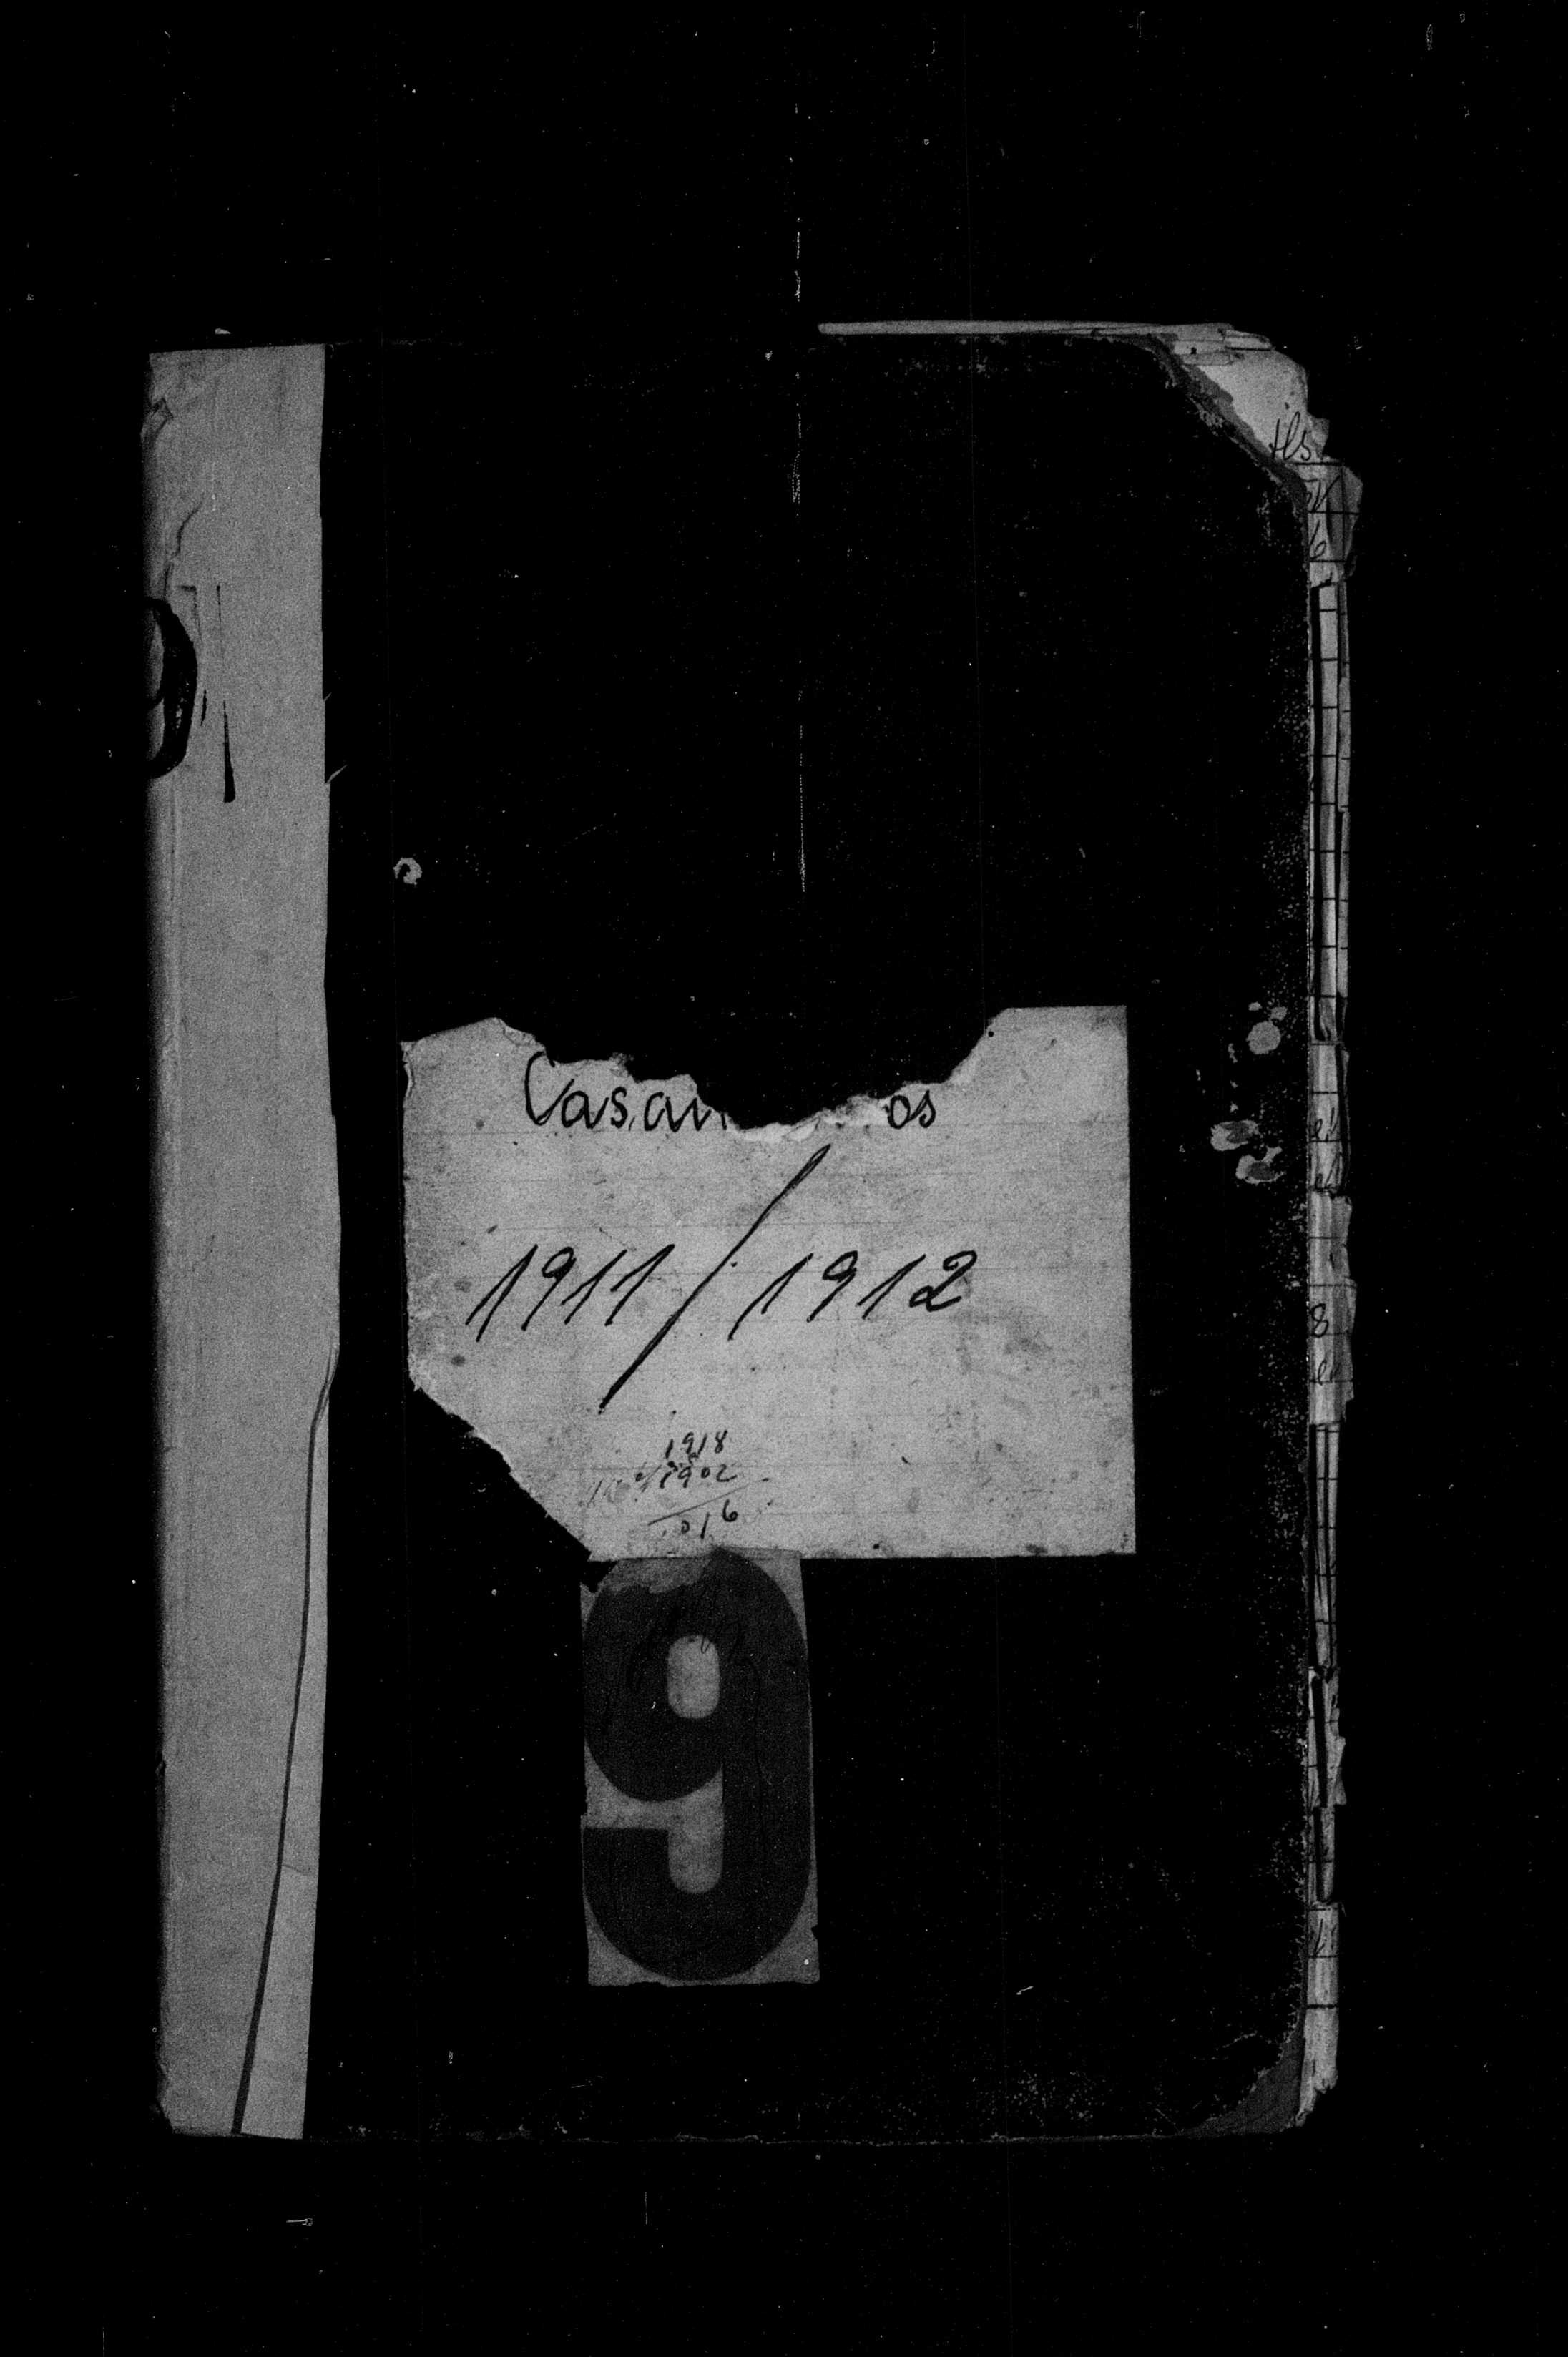 Casam os
1911/1912
1918
1902
016
9